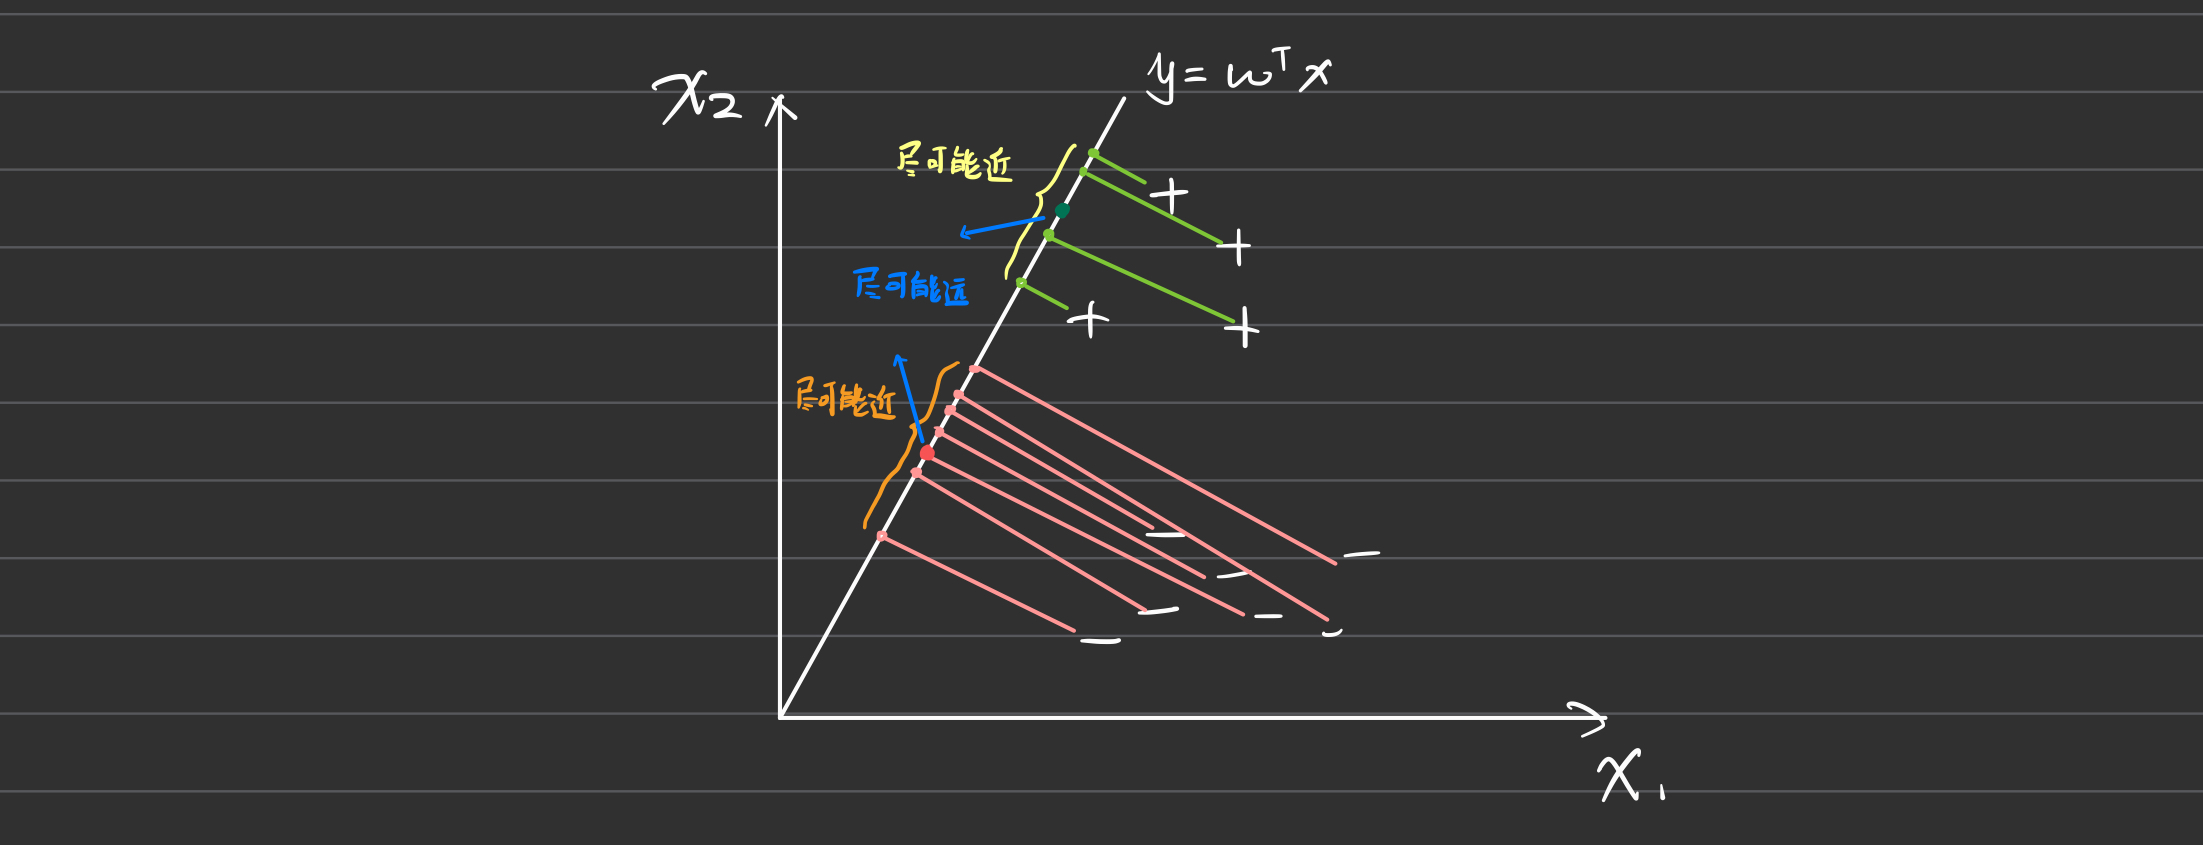 y = wᵀx
x₂
尽可能近
尽可能远
尽可能近
x₁